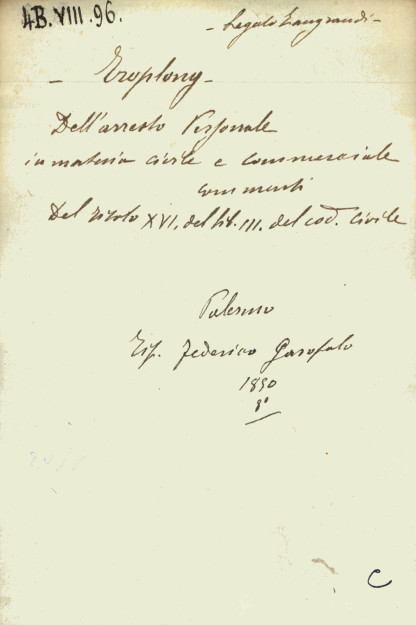 4B.VIII.96.
- Legato Zangrandi -
- Troplong -
Dell'arresto Personale
in materia civile e commerciale
commenti
Del titolo XVI. del lib. III. del cod. civile
Palermo
Tip. Federico Garofalo
1850
8°
C